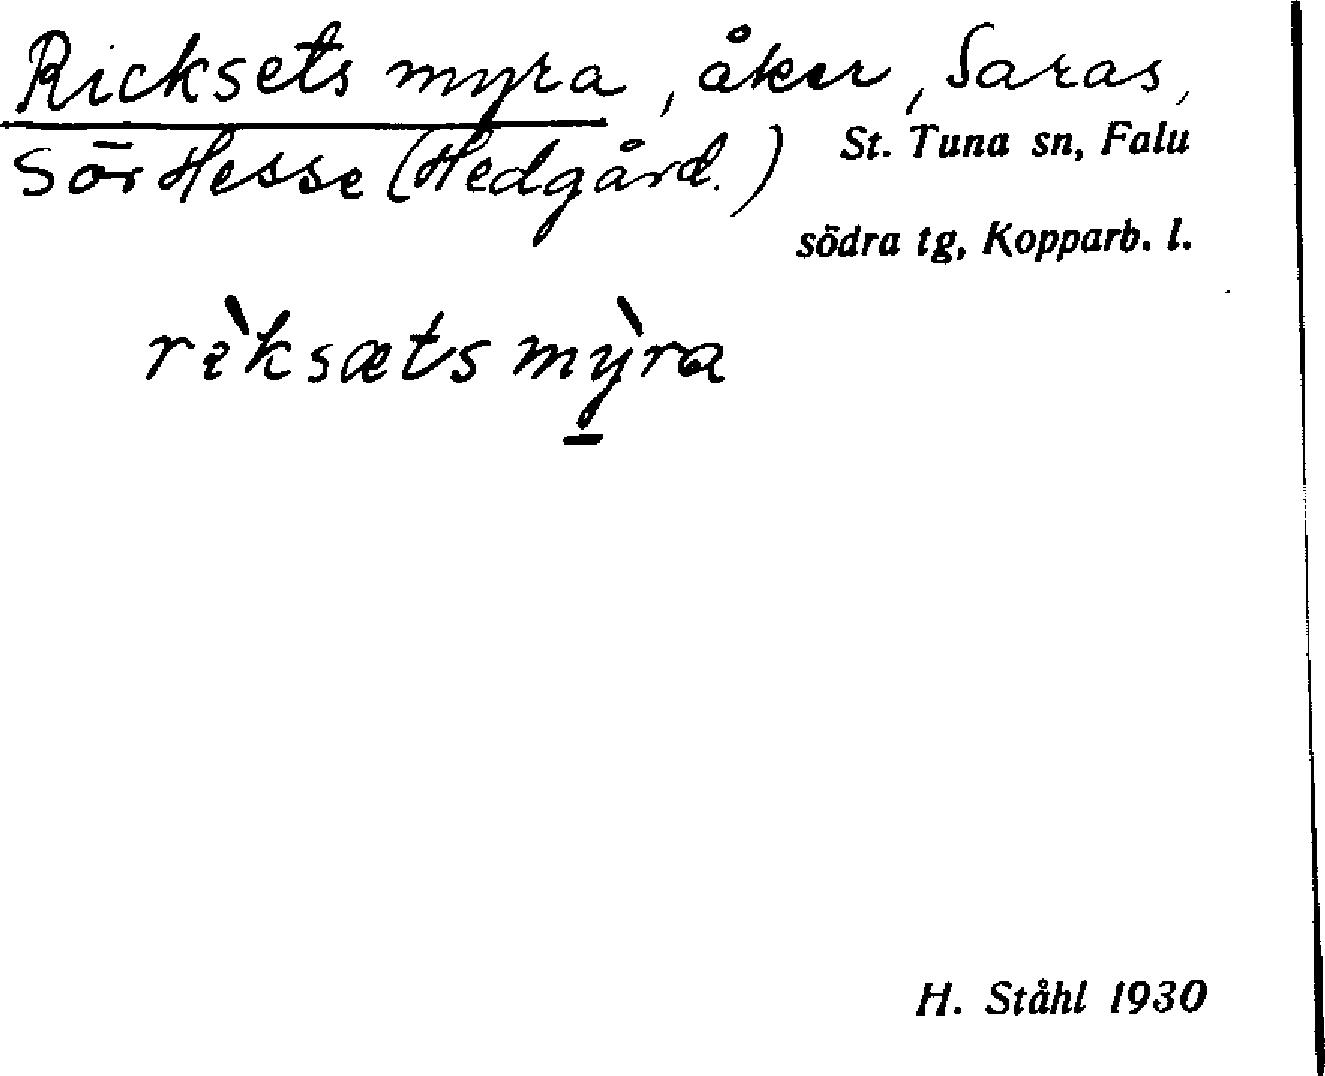 Ricksets myra, åker, Saras,
Sör Hesse (Hedgård.) St. Tuna sn, Falu
södra tg, Kopparb. l.
rìksæts mỳra
H. Ståhl 1930